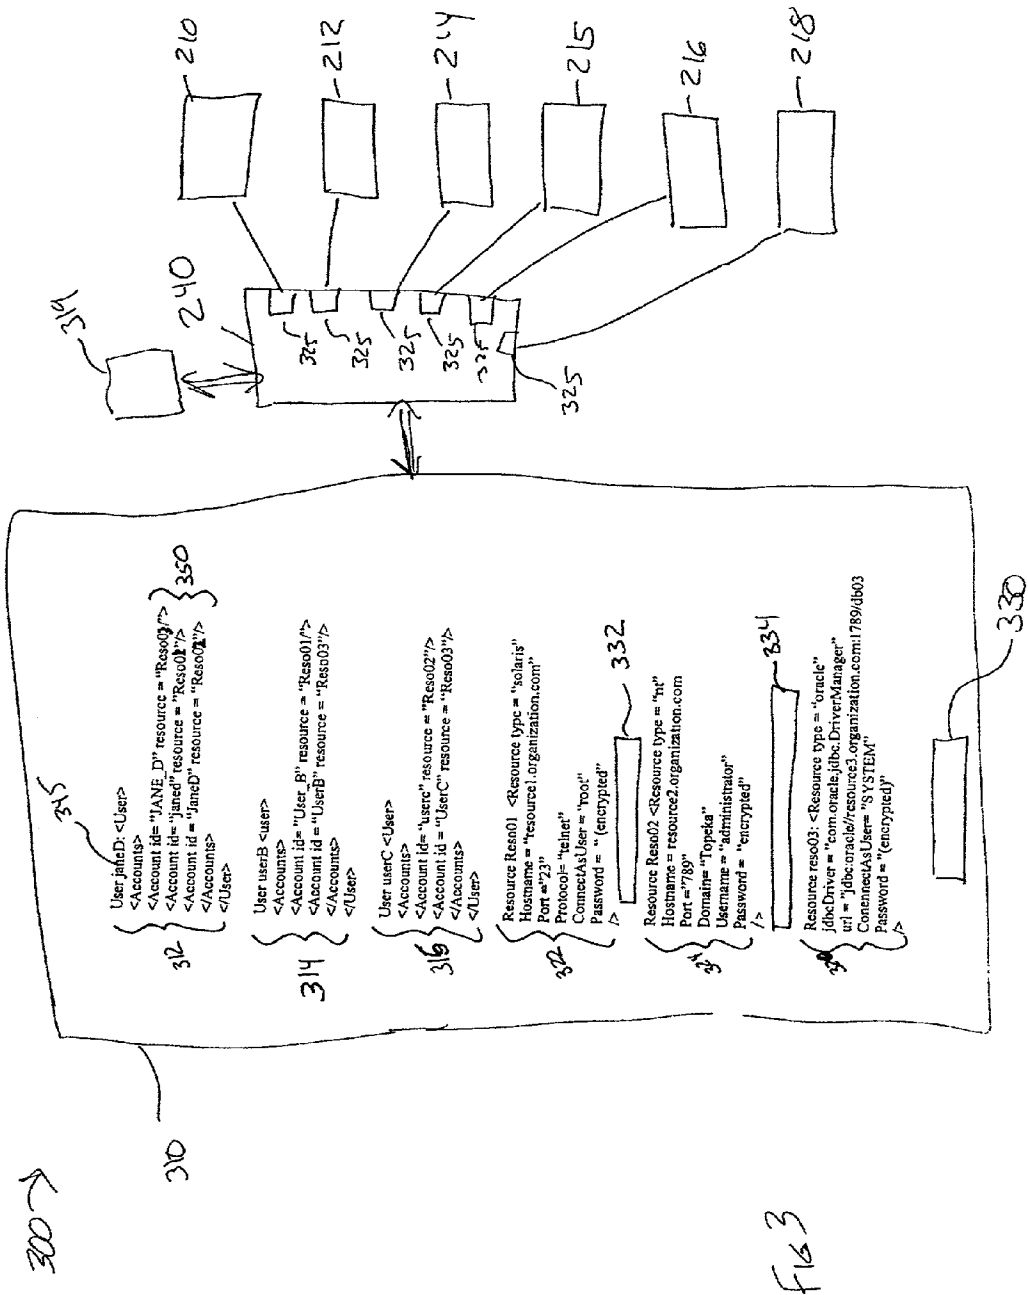 300
310
345
User janeD: <User>
<Accounts>
<Account id= "JANE_D" resource = "Reso03/">
<Account id= "janed" resource = "Reso01"/>
<Account id = "JaneD" resource = "Reso02"/>
</Accounts>
</User>
312
350
User userB <user>
<Accounts>
<Account id= "User_B" resource = "Reso01/">
<Account id = "UserB" resource = "Reso03">
</Accounts>
</User>
314
User userC <User>
<Accounts>
<Account id= "userc" resource = "Reso02"/>
<Account id = "UserC" resource = "Reso03">
</Accounts>
</User>
316
Resource Reso01 <Resource type = "solaris"
Hostname = "resource1.organization.com"
Port ="23"
Protocol= "telnet"
ConnectAsUser = "root"
Password = " (encrypted"
/>
322
332
Resource Reso02 <Resource type = "nt"
Hostname = resource2.organization.com
Port ="789"
Domain= "Topeka"
Username = "administrator"
Password = "encrypted"
/>
334
Resource reso03: <Resource type = "oracle"
jdbcDriver = "com.oracle.jdbc.DriverManager"
url = "jdbc:oracle//resource3.organization.com:1789/db03
ConenectAsUser= "SYSTEM"
Password = "(encrypted)"
/>
330
319
240
325
325
325
325
325
325
210
212
214
215
216
218
FIG 3